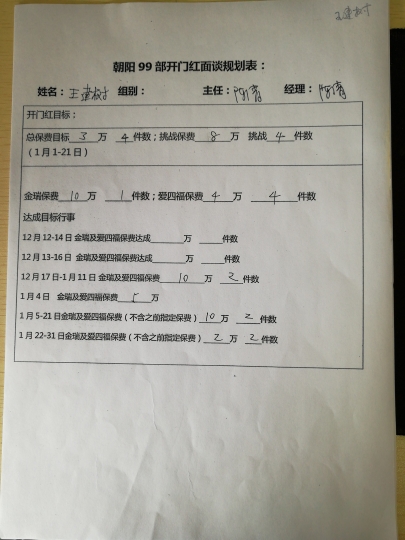 王建树
朝阳 99 部开门红面谈规划表：
姓名：王建树 组别： 主任：陈青 经理：陈青
开门红目标：
总保费目标 3 万 4 件数；挑战保费 8 万 挑战 4 件数
（1月1-21日）
金瑞保费 10 万 1 件数；爱四福保费 4 万 4 件数
达成目标行事
12月12-14日金瑞及爱四福保费达成 万 件数
12月13-16日 金瑞及爱四福保费达成 万 件数
12月17日-1月11日金瑞及爱四福保费 10 万 2 件数
1月4日 金瑞及爱四福保费 5 万
1月5-21日金瑞及爱四福保费（不含之前指定保费）10 万 2 件数
1月22-31日金瑞及爱四福保费（不含之前指定保费）2 万 2 件数